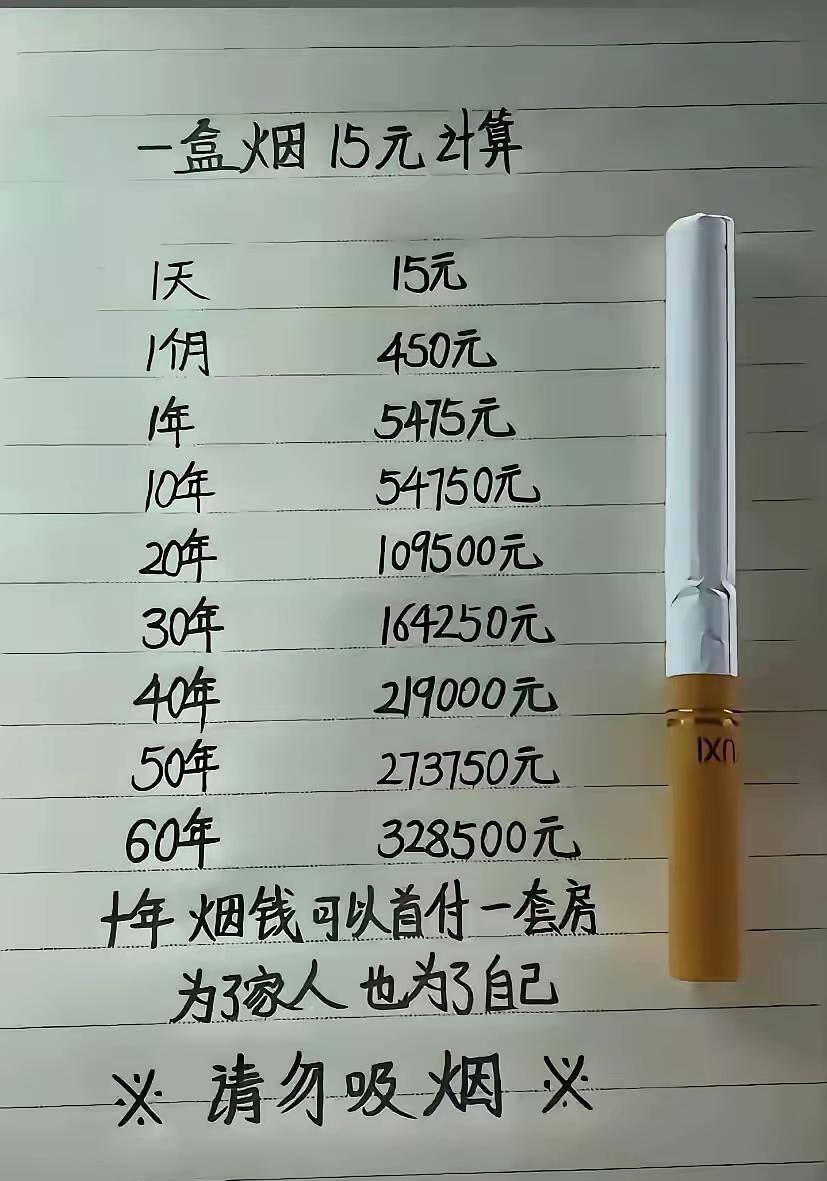 一盒烟 15元计算
1天 15元
1个月 450元
1年 5475元
10年 54750元
20年 109500元
30年 164250元
40年 219000元
50年 273750元
60年 328500元
十年 烟钱可以首付一套房
为了家人 也为了自己
※ 请勿吸烟 ※
UXI